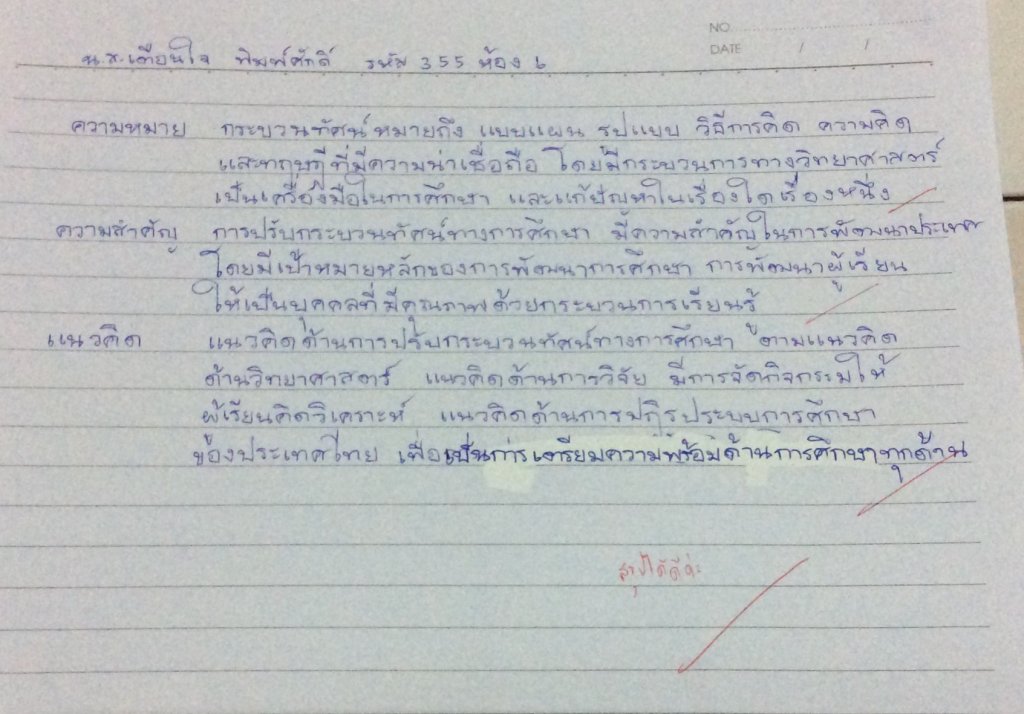 NO.
DATE / /
น.ส.เตือนใจ พิมพ์ศักดิ์ รหัส 355 ห้อง 6
ความหมาย กระบวนทัศน์หมายถึง แบบแผน รูปแบบ วิธีการคิด ความคิด
และทฤษฎีที่มีความน่าเชื่อถือ โดยมีกระบวนการทางวิทยาศาสตร์
เป็นเครื่องมือในการศึกษา และแก้ปัญหาในเรื่องใดเรื่องหนึ่ง
ความสำคัญ การปรับกระบวนทัศน์ทางการศึกษา มีความสำคัญในการพัฒนาประเทศ
โดยมีเป้าหมายหลักของการพัฒนาการศึกษา การพัฒนาผู้เรียน
ให้เป็นบุคคลที่มีคุณภาพด้วยกระบวนการเรียนรู้
แนวคิด แนวคิดด้านการปรับกระบวนทัศน์ทางการศึกษา ตามแนวคิด
ด้านวิทยาศาสตร์ แนวคิดด้านการวิจัย มีการจัดกิจกรรมให้
ผู้เรียนคิดวิเคราะห์ แนวคิดด้านการปฏิรูประบบการศึกษา
ของประเทศไทย เพื่อเป็นการเตรียมความพร้อมด้านการศึกษาทุกด้าน
สรุปได้ดีค่ะ